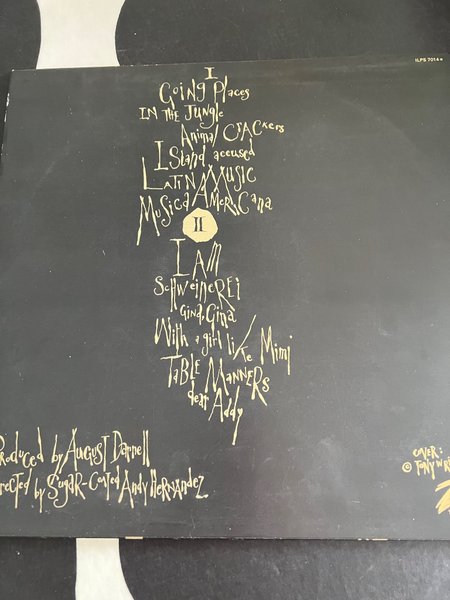 ILPS 7014
I
Going Places
IN THE JUNGLE
Animal CrACKers
I Stand accused
LATIN MUSIC
MusicA AMERICana
II
I AM
ScHweinEREi
Gina, Gina
With a girl like Mimi
TaBLE MANNERS
dear Addy
Produced by AUGUST Darnell
Directed by SUGAR-COATED Andy HERNANDEZ
COVER:
© TONY WRI